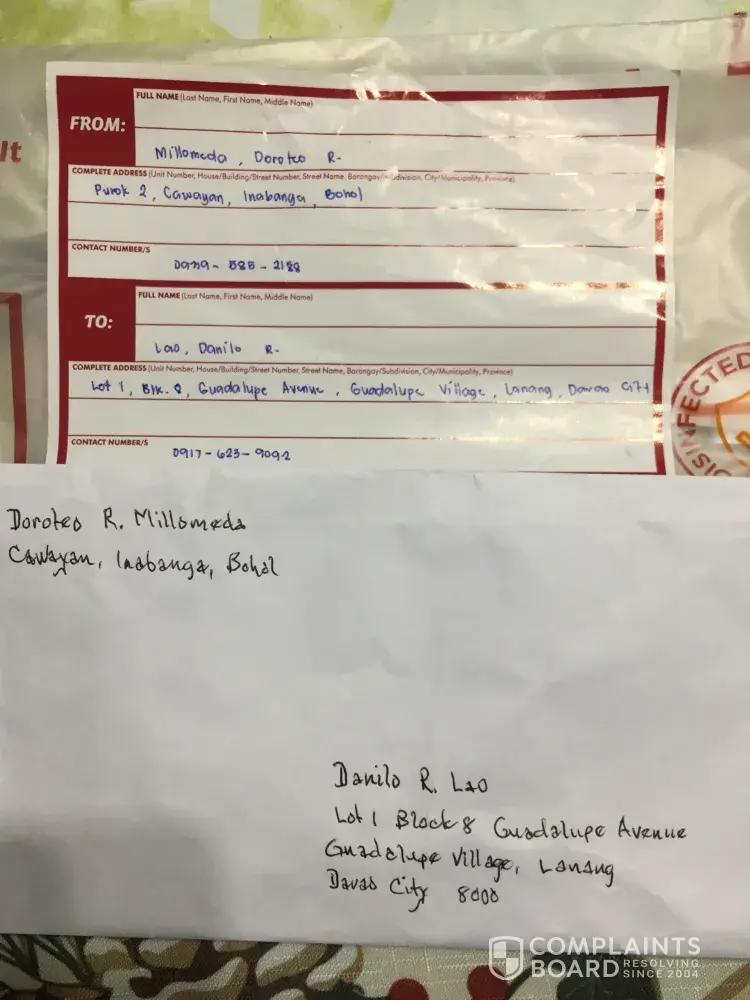 lt
FULL NAME (Last Name, First Name, Middle Name)
FROM:
Millomeda, Doroteo R-
COMPLETE ADDRESS (Unit Number, House/Building/Street Number, Street Name, Barangay/Subdivision, City/Municipality, Province)
Purok 2, Cawayan, Inabanga, Bohol
CONTACT NUMBER/S
FULL NAME (Last Name, First Name, Middle Name)
TO:
Lao, Danilo R-
COMPLETE ADDRESS (Unit Number, House/Building/Street Number, Street Name, Barangay/Subdivision, City/Municipality, Province)
Lot 1, Blk. 8, Guadalupe Avenue, Guadalupe Village, Lanang, Davao City
CONTACT NUMBER/S
0917-623-9092
DISINFECTED
Doroteo R. Millomeda
Cawayan, Inabanga, Bohol
Danilo R. Lao
Lot 1 Block 8 Guadalupe Avenue
Guadalupe Village, Lanang
Davao City 8000
COMPLAINTS
BOARD RESOLVING SINCE 2004